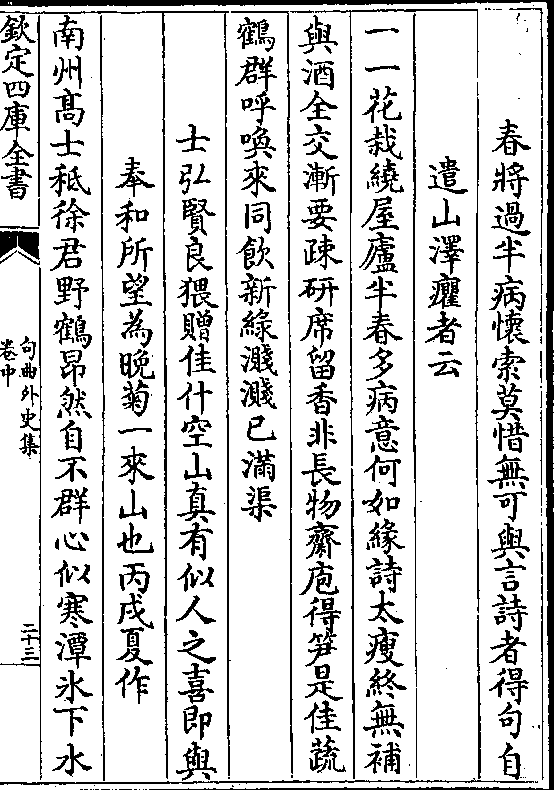 春將過半病懷索莫惜無可與言詩者得句自
遣山澤癯者云
一一花栽繞屋廬半春多病意何如緣詩太瘦終無補
與酒全交漸要疎硏席留香非長物齋庖得筍是佳蔬
鶴群呼喚來同飲新綠濺濺已滿渠
士弘賢良猥贈佳什空山真有似人之喜即與
奉和所望為晚菊一來山也丙戌夏作
南州髙士秪徐君野鶴昂然自不群心似寒潭氷下水
欽定四庫全書
句曲外史集
卷中
二十三